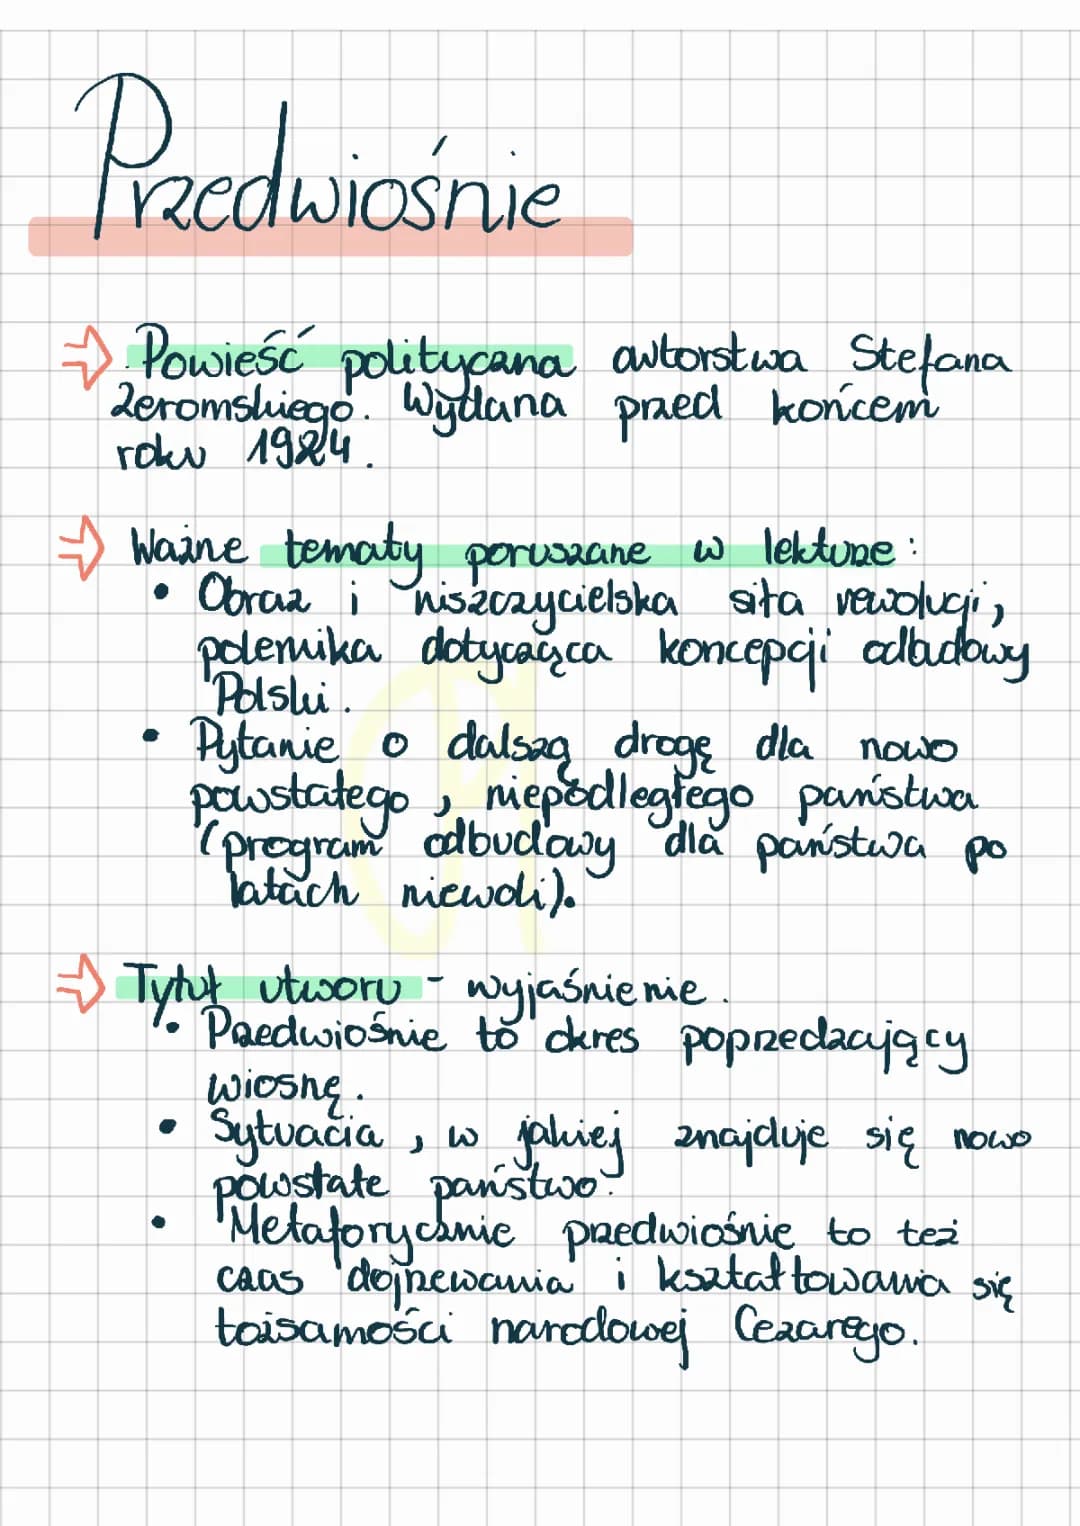 Przedwiośnie
⇒ Powieść polityczna autorstwa Stefana
Żeromskiego. Wydana przed końcem
roku 1924.
⇒ Ważne tematy poruszane w lekturze:
• Obraz i niszczycielska siła rewolucji,
polemika dotycząca koncepcji odbudowy
Polski.
• Pytanie o dalszą drogę dla nowo
powstałego, niepodległego państwa
(program odbudowy dla państwa po
latach niewoli).
⇒ Tytuł utworu - wyjaśnienie.
• Przedwiośnie to okres poprzedzający
wiosnę.
• Sytuacja, w jakiej znajduje się nowo
powstałe państwo.
• Metaforycznie przedwiośnie to też
czas dojrzewania i kształtowania się
tożsamości narodowej Cezarego.